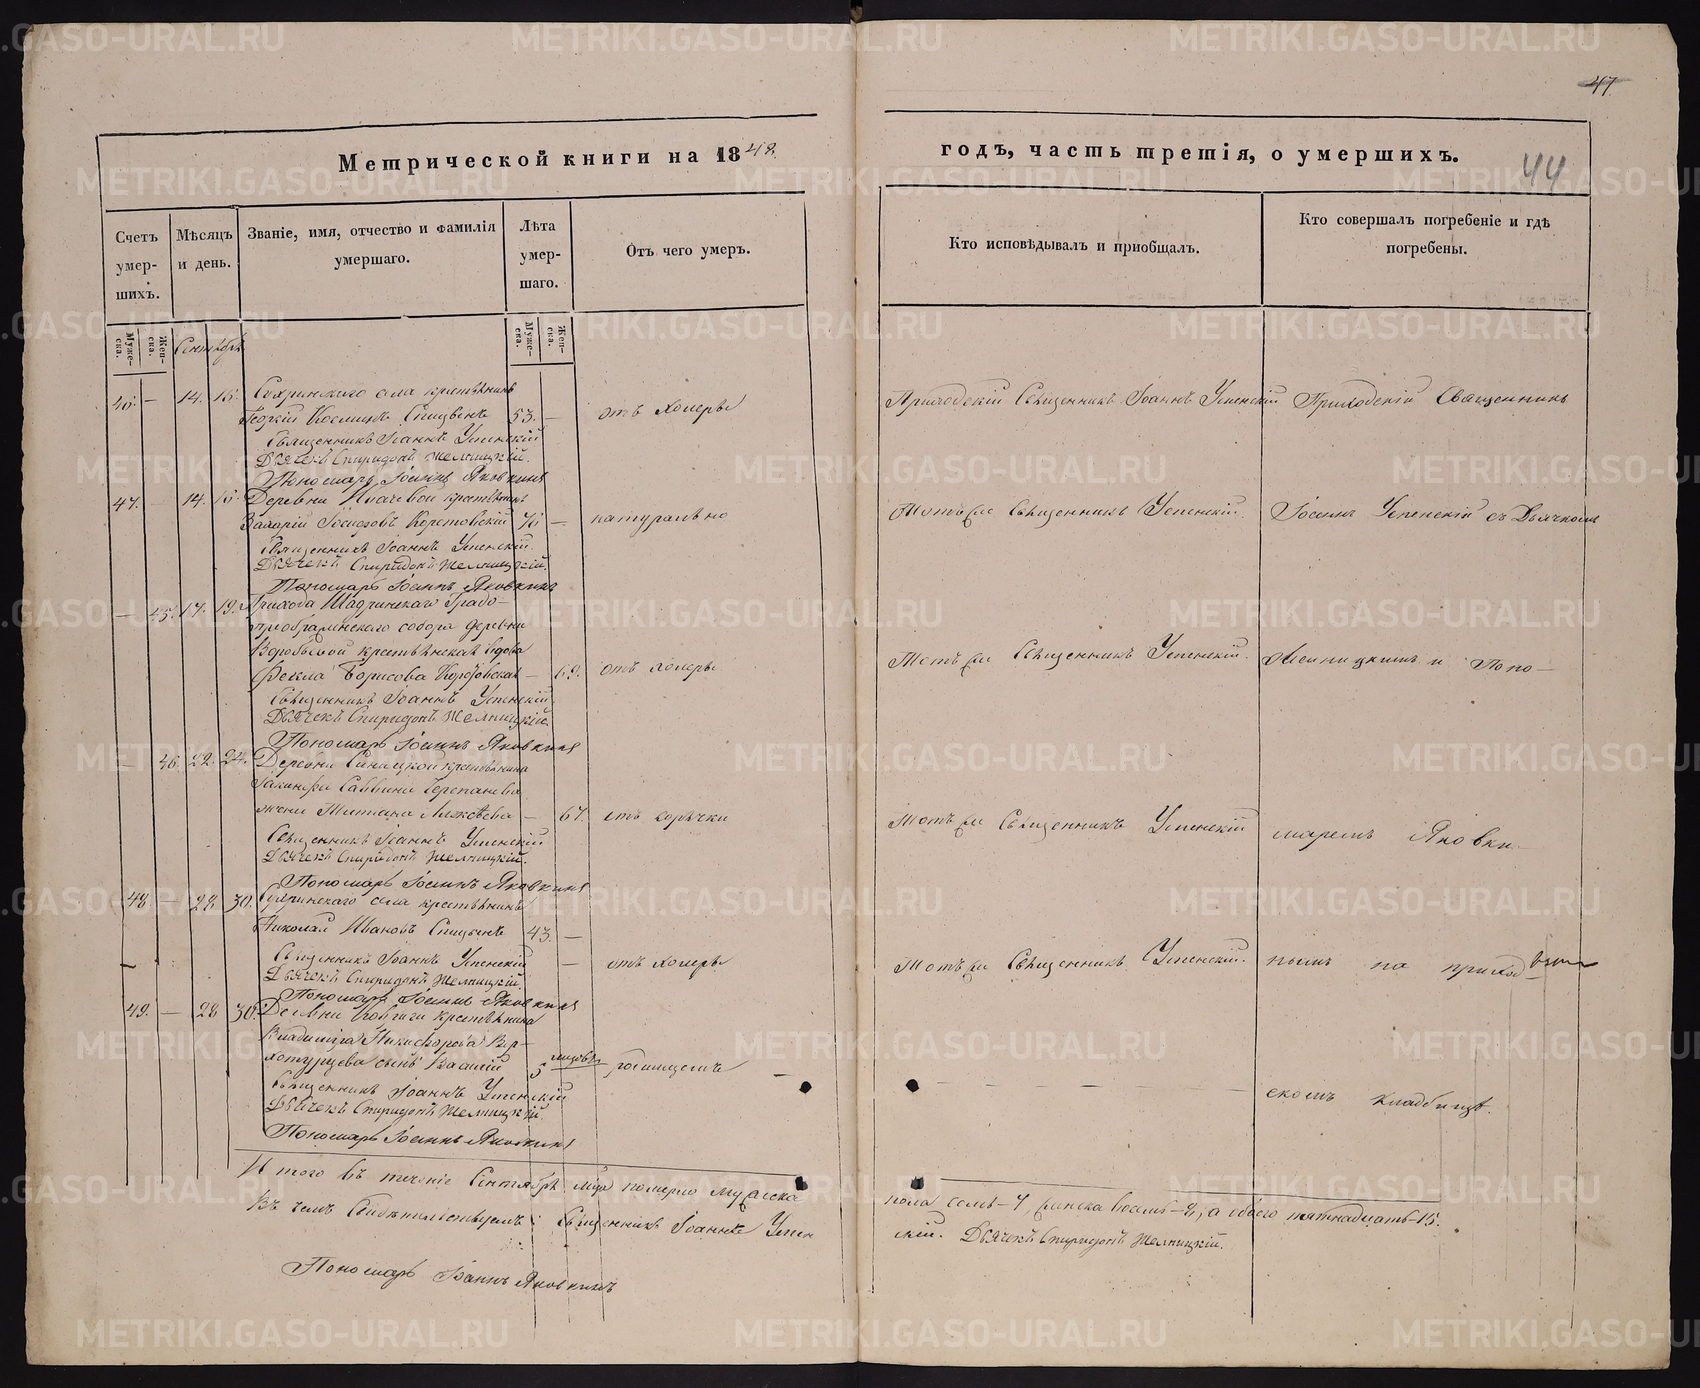 47
44
Метрической книги на 1848
годъ, часть третія, о умершихъ.
Счетъ умер-шихъ.
Мѣсяцъ и день.
Званіе, имя, отчество и фамилія умершаго.
Лѣта умер-шаго.
Отъ чего умеръ.
Кто исповѣдывалъ и пріобщалъ.
Кто совершалъ погребеніе и гдѣ погребены.
Муже-ска.
Жен-ска.
Сентябрь
Муже-ска.
Жен-ска.
46. — 14. 16. Сухринскаго села крестьянинъ
Георгій Спицынъ 53. — отъ холеры
Приходскій Священникъ Іоаннъ Успенскій
Приходскій Священникъ
Священникъ Іоаннъ Успенскій
Дьячекъ Спиридонъ Желницкій.
Пономарь Іоаннъ Яковкинъ
47. — 14. 16. Деревни крестьянинъ
Захарій 70 — натурально
Тотъ же Священникъ Успенскій.
Іоаннъ Успенскій съ Дьячкомъ
Священникъ Іоаннъ Успенскій.
Дьячекъ Спиридонъ Желницкій.
Пономарь Іоаннъ Яковкинъ
— 45. 17. 19. Прихода Шадринскаго Градо-
преображенскаго собора деревни
Воробьевой крестьянская вдова
Фекла Борисова — 69. отъ холеры
Тотъ же Священникъ Успенскій.
Желницкимъ и Поно-
Священникъ Іоаннъ Успенскій
Дьячекъ Спиридонъ Желницкій.
Пономарь Іоаннъ Яковкинъ
— 46. 22. 24. Деревни крестьянина
Саввина Черепанова
жена Татіана — 67. отъ горячки
Тотъ же Священникъ Успенскій
маремъ Яковки-
Священникъ Іоаннъ Успенскій
Дьячекъ Спиридонъ Желницкій.
Пономарь Іоаннъ Яковкинъ
48. — 28 30. Сухринскаго села крестьянинъ
Николай Ивановъ Спицынъ 43. —
Священникъ Іоаннъ Успенскій — отъ холеры
Тотъ же Священникъ Успенскій.
нымъ на приход-
Дьячекъ Спиридонъ Желницкій.
Пономарь Іоаннъ Яковкинъ
49. — 28 30. Деревни крестьянина
Владиміра Никифорова Вер-
хотурцева сынъ Василій 5 родимцемъ —
скомъ кладбищѣ.
Священникъ Іоаннъ Успенскій
Дьячекъ Спиридонъ Желницкій.
Пономарь Іоаннъ Яковкинъ
Итого въ теченіе Сентября м-ца померло мужеска
пола семь-7, женска восемь-8, а обоего пятнадцать-15.
Въ чемъ свидѣтельствуемъ: Священникъ Іоаннъ Успен
скій. Дьячекъ Спиридонъ Желницкій.
Пономарь Іоаннъ Яковкинъ
METRIKI.GASO-URAL.RU